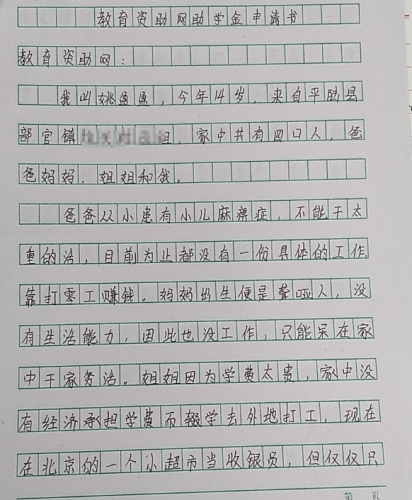 教育资助网助学金申请书
教育资助网：
我叫姚鱼鱼，今年14岁，来自平陆县
部官镇 组，家中共有四口人，爸
爸妈妈，姐姐和我。
爸爸从小患有小儿麻痹症，不能干太
重的活，目前为止都没有一份具体的工作
靠打零工赚钱。妈妈出生便是聋哑人，没
有生活能力，因此也没工作，只能呆在家
中干家务活。姐姐因为学费太贵，家中没
有经济承担学费而辍学去外地打工，现在
在北京的一个小超市当收银员，但仅仅只
第 页